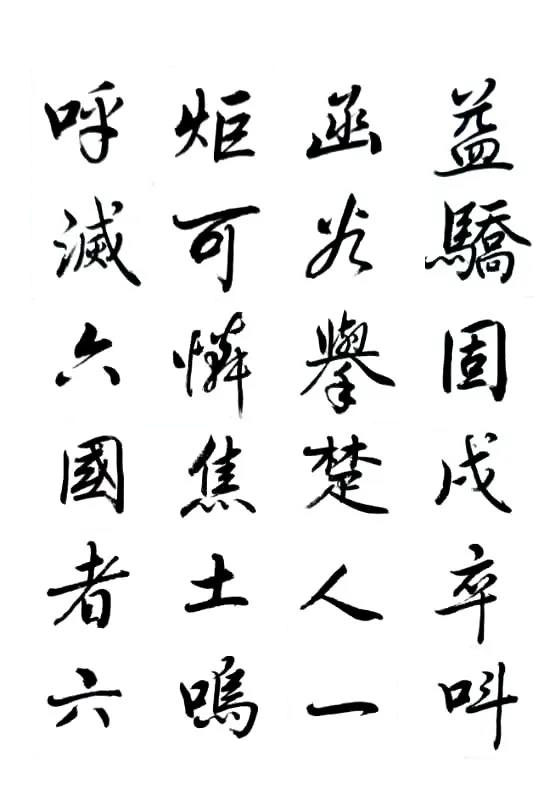 益驕固戍卒叫
函谷擧楚人一
炬可憐焦土嗚
呼滅六國者六